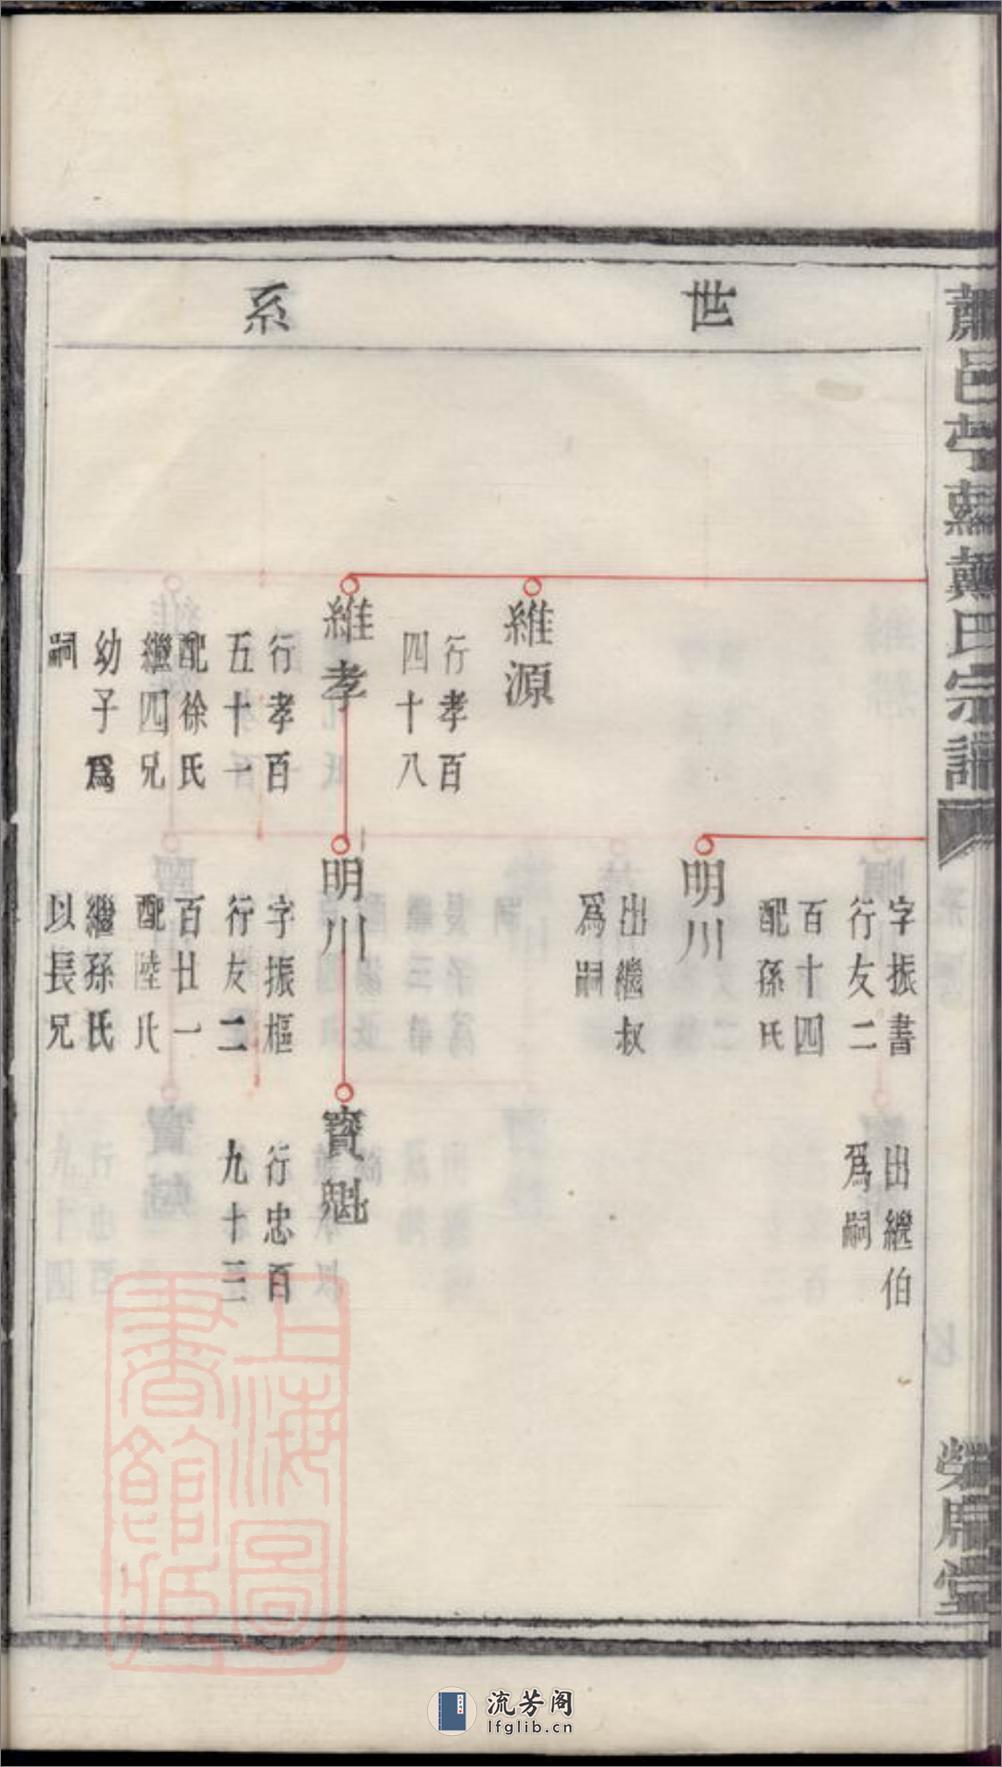 世系
字振書
行友二
百十四
配孫氏
出繼伯
爲嗣
明川
出繼叔
爲嗣
維源
行孝百
四十八
維孝
行孝百
五十一
配徐氏
繼四兄
幼子爲
嗣
明川
字振樞
行友二
百廿一
配陸氏
繼孫氏
以長兄
寶魁
行忠百
九十三
上海圖書館藏
流芳阁
lfglib.cn